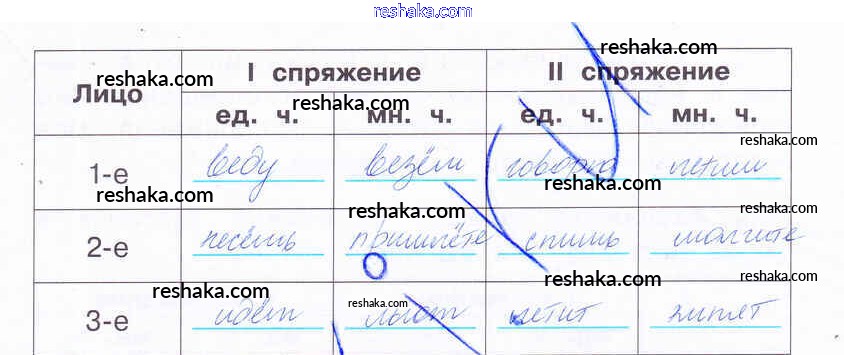 reshaka.com
reshaka.com
Лицо I спряжение II спряжение
reshaka.com reshaka.com
ед. ч. мн. ч. ед. ч. мн. ч.
reshaka.com reshaka.com
1-е веду везём говорю летим
reshaka.com reshaka.com reshaka.com
reshaka.com reshaka.com
2-е несёшь пришлёте спишь молчите
reshaka.com reshaka.com
reshaka.com reshaka.com reshaka.com
3-е идёт летит
reshaka.com